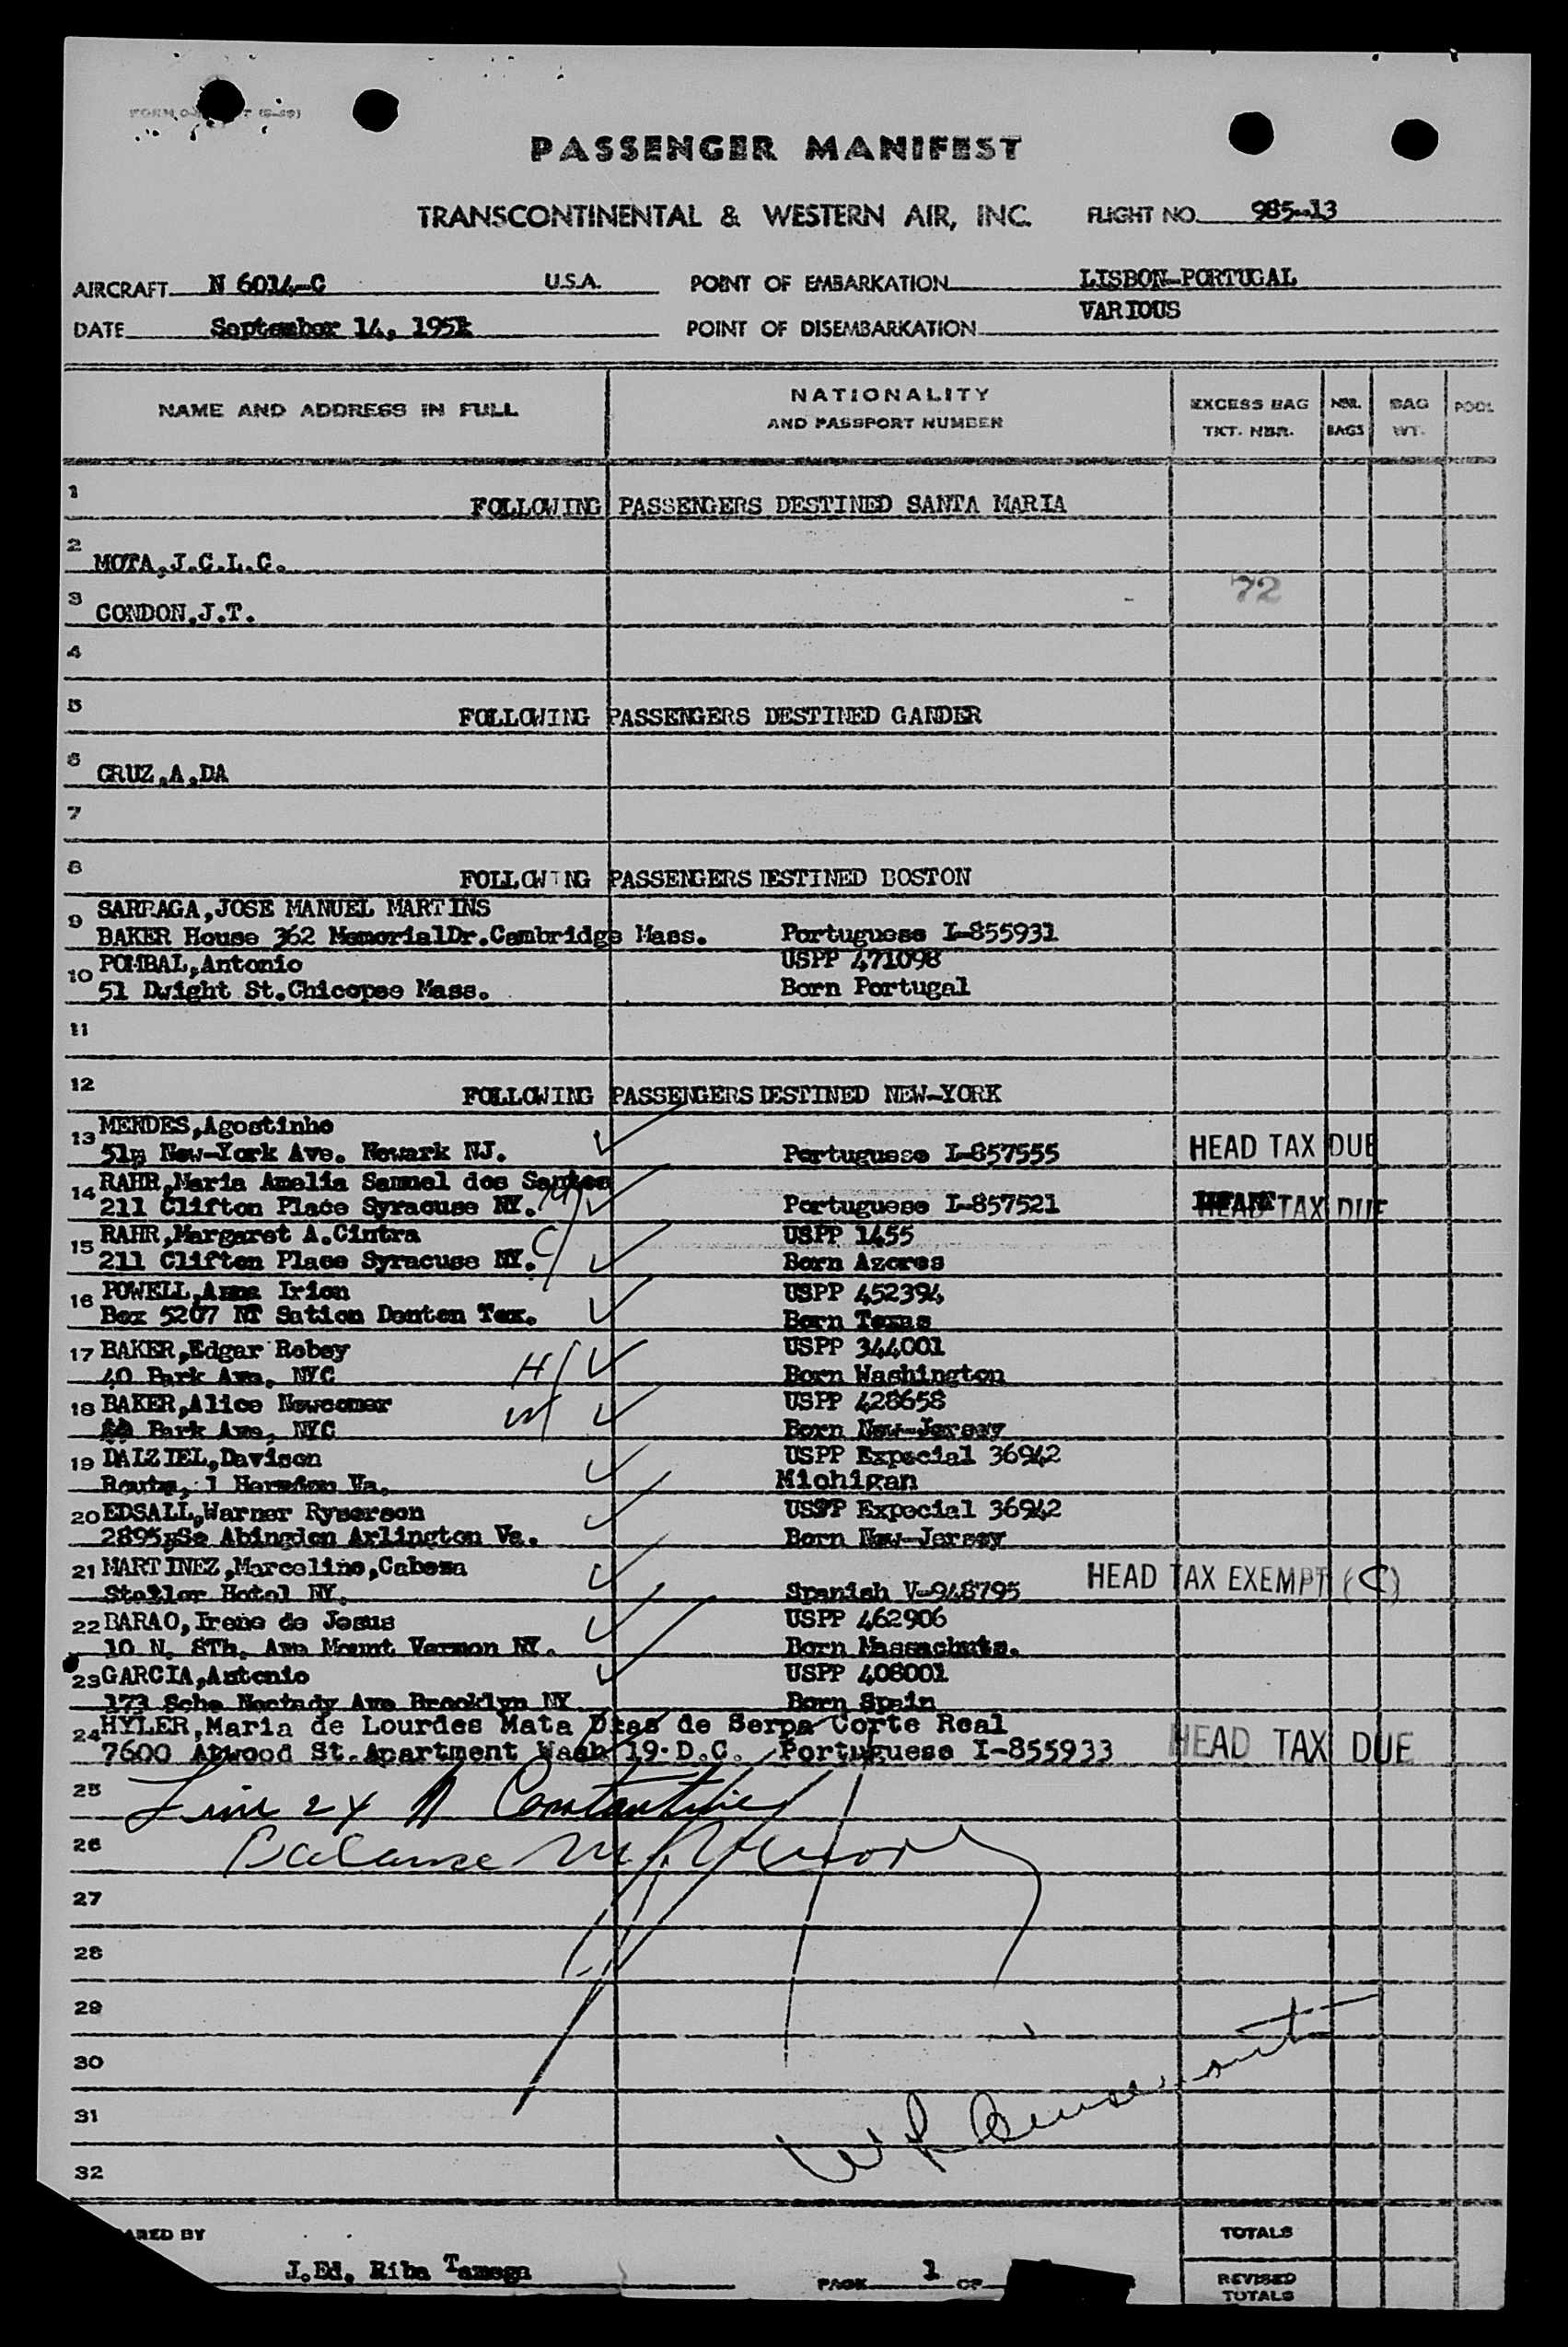 PASSENGER MANIFEST
TRANSCONTINENTAL & WESTERN AIR, INC. FLIGHT NO. 985-13
AIRCRAFT N 6014-C U.S.A. POINT OF EMBARKATION LISBON-PORTUGAL
DATE September 14, 1951 POINT OF DISEMBARKATION VARIOUS
NAME AND ADDRESS IN FULL NATIONALITY AND PASSPORT NUMBER EXCESS BAG TKT. NBR. NBR. BAGS BAG WT. POOL
1 FOLLOWING PASSENGERS DESTINED SANTA MARIA
2 MOTA,J.C.L.C.
72
3 CONDON,J.T.
4
5 FOLLOWING PASSENGERS DESTINED GANDER
6 CRUZ,A,DA
7
8 FOLLOWING PASSENGERS DESTINED BOSTON
9 SARRAGA,JOSE MANUEL MARTINS
BAKER House 362 MemorialDr.Cambridge Mass. Portuguese I-855931
10 POMBAL,Antonio USPP 471098
51 Dwight St.Chicopee Mass. Born Portugal
11
12 FOLLOWING PASSENGERS DESTINED NEW-YORK
13 MENDES,Agostinho
New-York Ave. Newark NJ. Portuguese I-857555 HEAD TAX DUE
14 RAHR,Maria Amelia Samuel dos Santos
211 Clifton Place Syracuse NY. Portuguese I-857521 HEAD TAX DUE
15 RAHR,Margaret A.Cintra C USPP 1455
211 Clifton Place Syracuse NY. Born Azores
16 POWELL,Anna Irion USPP 452394
Box 5207 NT Sation Denton Tex. Born Texas
17 BAKER,Edgar Robey USPP 344001
40 Park Ave, NYC H Born Washington
18 BAKER,Alice Newcomer W USPP 428658
Park Ave, NYC Born New-Jersey
19 DALZIEL,Davison USPP Expecial 36942
Route, 1 Herndon Va. Michigan
20 EDSALL,Warner Ryserson USPP Expecial 36942
Abingdon Arlington Va. Born New-Jersey
21 MARTINEZ,Marcelino,Cabeza HEAD TAX EXEMPT (C)
Statler Hotel NY. Spanish V-948795
22 BARAO,Irene de Jesus USPP 462906
10 N. 8Th. Ave Mount Vernon NY. Born Massachuts.
23 GARCIA,Antonio USPP 408001
173 Sche Nectady Ave Brooklyn NY Born Spain
24 HYLER,Maria de Lourdes Mata Dias de Serpa Corte Real
7600 Atwood St.Apartment Wash 19.D.C. Portuguese I-855933 HEAD TAX DUE
25 Line 24 A Constantine
26 Balance
27
28
29
30
31
32
ARED BY TOTALS
J.Ed. Riba Tamega PAGE 1 OF REVISED TOTALS